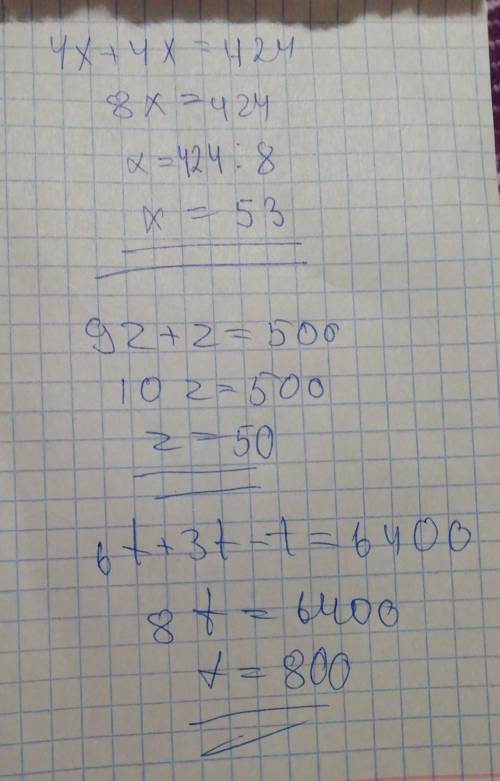 4x+4x=424
8x=424
x=424:8
x=53
9z+z=500
10z=500
z=50
6t+3t-t=6400
8t=6400
t=800